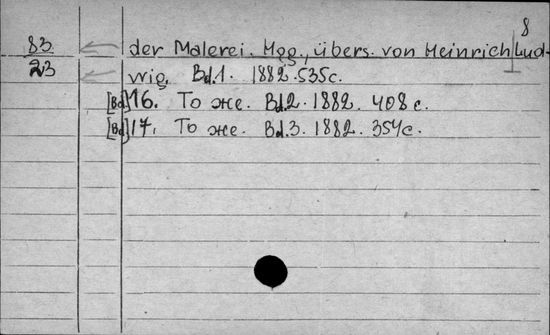 8
83 der Malerei. Hgg., übers. von Heinrich Lud-
23 wig. Bd.1. 1882. 535 с.
[Bd] 16. То же. Bd.2. 1882. 408 с.
[Bd] 17. То же. Bd.3. 1882. 354 с.